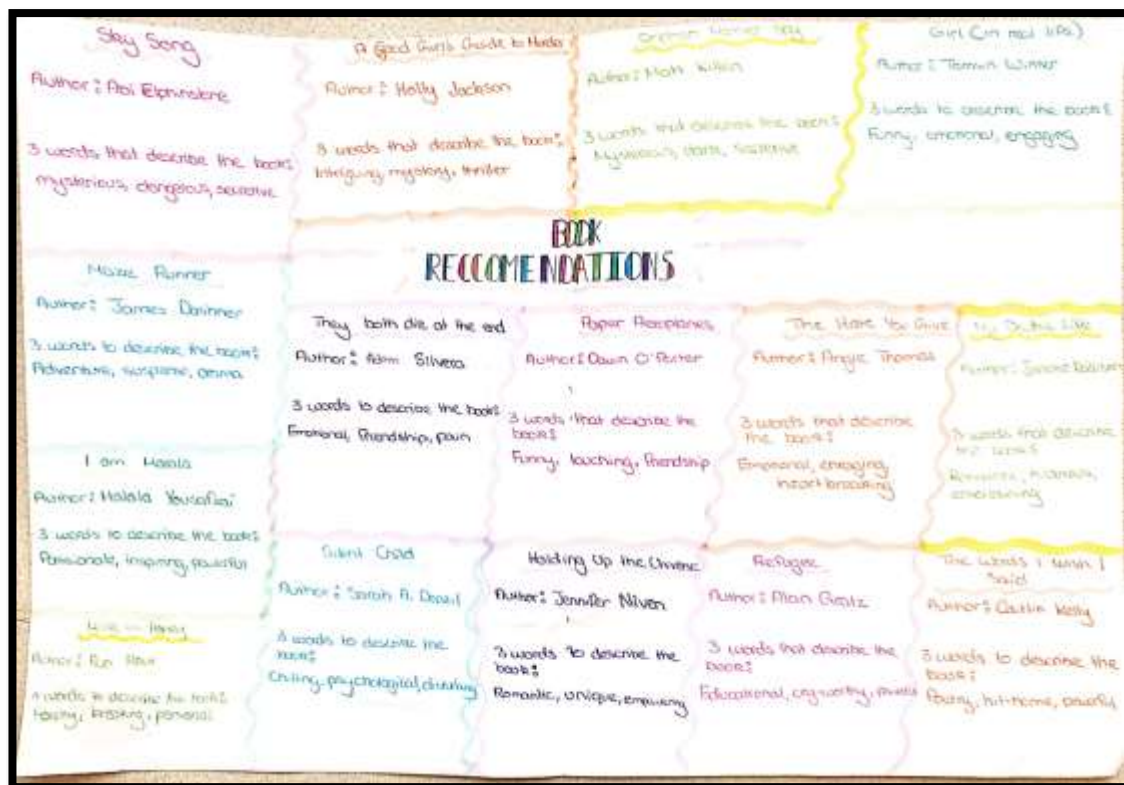 Sky Song
Author: Abi Elphinstone
3 words that describe the book:
mysterious, dangerous, secretive
A Good Girl's Guide to Murder
Author: Holly Jackson
3 words that describe the book:
Intriguing, mystery, thriller
Author: Matt Killeen
3 words that describe the book:
Mysterious, secretive
Girl (in real life)
Author: Tamsin Winter
3 words to describe the book:
Funny, emotional, engaging
BOOK
RECCOMENDATIONS
Maze Runner
Author: James
3 words to describe the book:
Adventure, suspense,
They both die at the end
Author: Adam Silvera
3 words to describe the book:
Emotional, Friendship, pain
Paper Aeroplanes
Author: Dawn O'Porter
3 words that describe the
book:
Funny, touching, Friendship
The Hate You Give
Author: Angie Thomas
3 words that describe
the book:
Emotional, engaging,
heartbreaking
Author: Simone
3 words that describe
the book:
I am Malala
Author: Malala Yousafzai
3 words to describe the book:
Passionate, inspiring, powerful
Silent Child
Author: Sarah A. Denzil
3 words to describe the
book:
Chilling, psychological, disturbing
Holding Up the Universe
Author: Jennifer Niven
3 words to describe the
book:
Romantic, unique, empowering
Refugee
Author: Alan Gratz
3 words that describe the
book:
Educational, cry-worthy,
The Words I Wish I
Said
Author: Caitlin Kelly
3 words to describe the
book:
Poetry, hit-home, powerful
Author:
words to describe the book:
Poetry, personal